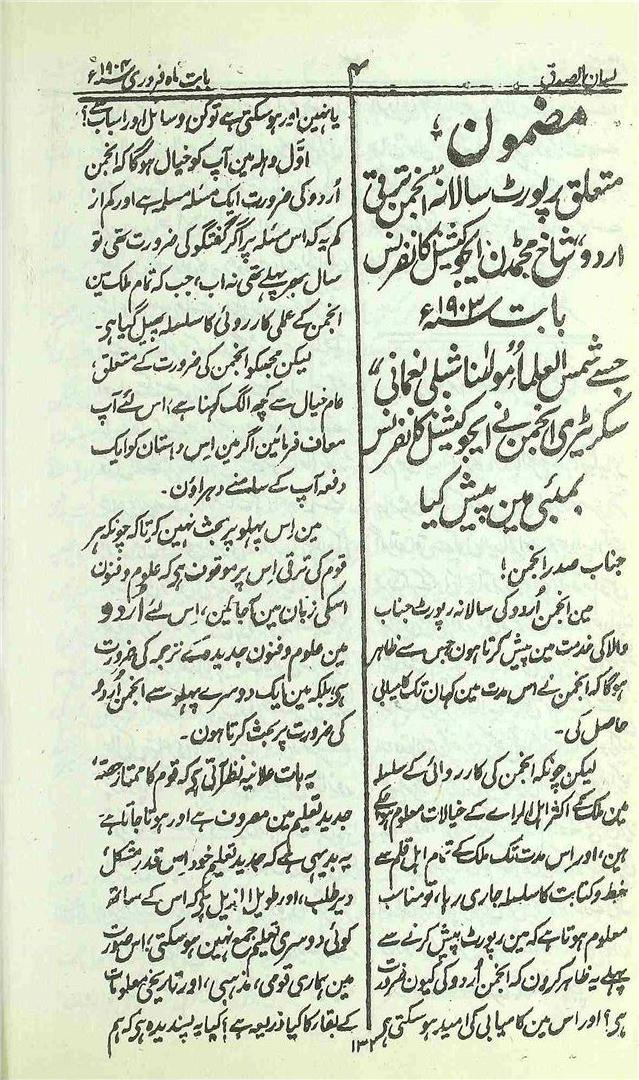 لسان الصدق
۴
بابت ماہ فروری سنہ ۱۹۰۴ء
مضمون
متعلق رپورٹ سالانہ "انجمن ترقی
اردو" شاخ محمڈن ایجوکیشنل کانفرنس
بابت سنہ ۱۹۰۳ء
جسے شمس العلماء مولٰنا شبلی نعمانی"
سکریٹری انجمن نے ایجوکیشنل کانفرنس
بمبئی مین پیش کیا
جناب صدر انجمن!
مین انجمن اُردو کی سالانہ رپورٹ جناب
والا کی خدمت مین پیش کرتا ہون جس سے ظاہر
ہوگا کہ انجمن نے اس مدت مین کہان تک کامیابی
حاصل کی۔
لیکن چونکہ انجمن کی کارروائی کے سلسلہ
مین ملک کے اکثر اہل الراے کے خیالات معلوم ہوئے
ہین، اور اس مدت تک ملک کے تمام اہل قلم سے
خط و کتابت کا سلسلہ جاری رہا، تو مناسب
معلوم ہوتا ہے کہ مین رپورٹ پیش کرنے سے
پہلے یہ ظاہر کرون کہ انجمن اُردو کی کیون ضرورت
ہی؟ اور اس مین کامیابی کی امید ہوسکتی ہی
یا نہین اور ہوسکتی ہے تو کن وسائل اور اسباب سے؟
اوّل وہلہ مین آپ کو خیال ہوگا کہ انجمن
اُردو کی ضرورت ایک مسئلہ مسلمہ ہے اور کم از
کم یہ کہ اس مسئلہ پر اگر گفتگو کی ضرورت تھی تو
سال بھر پہلے تھی نہ اب، جب کہ تمام ملک مین
انجمن کے عملی کارروائی کا سلسلہ پھیل گیا ہی۔
لیکن مجھکو انجمن کی ضرورت کے متعلق،
عام خیال سے کچھ الگ کہنا ہے، اس لئے آپ
معاف فرمائین اگر مین اس دہستان کو ایک
دفعہ آپ کے سامنے دہراؤن۔
مین اس پہلو پر بحث نہین کرتا کہ چونکہ ہر
قوم کی ترقی اس پر موقوف ہی کہ علوم و فنون
اسکی زبان مین آجائین، اس لئے اُردو
مین علوم و فنون جدیدہ کے ترجمہ کی ضرورت
ہی، بلکہ مین ایک دوسرے پہلو سے انجمن اُردو
کی ضرورت پر بحث کرتا ہون۔
یہ بات علانیہ نظر آتی ہی کہ قوم کا ممتاز حصّہ،
جدید تعلیم مین مصروف ہے اور ہوتا جاتا ہے۔
یہ بدیہی ہے کہ جدید تعلیم خود اس قدر مشکل،
دیر طلب، اور طویل الذیل ہی کہ اس کے ساتھ
کوئی دوسری تعلیم جمع نہین ہوسکتی، اس صورت
مین ہماری قومی، مذہبی، اور تاریخی معلومات
کے بقا کا کیا ذریعہ ہے؟ کیا یہ پسندیدہ ہی کہ ہم